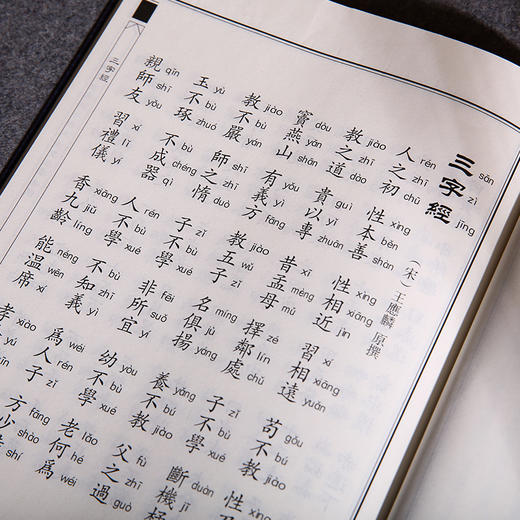 三字經
sān zì jīng
（宋）王應麟 原撰
人之初 性本善 性相近 習相遠 苟不教 性乃
rén zhī chū xìng běn shàn xìng xiāng jìn xí xiāng yuǎn gǒu bú jiào xìng
教之道 貴以專 昔孟母 擇鄰處 子不學 斷機杼
jiào zhī dào guì yǐ zhuān xī mèng mǔ zé lín chǔ zǐ bù xué duàn jī
竇燕山 有義方 教五子 名俱揚 養不教 父之過
dòu yān shān yǒu yì fāng jiào wǔ zǐ míng jù yáng yǎng bú jiào fù zhī guò
教不嚴 師之惰 子不學 非所宜 幼不學 老何為
jiào bù yán shī zhī duò zǐ bù xué fēi suǒ yí yòu bù xué lǎo hé wéi
玉不琢 不成器 人不學 不知義 為人子 方少時
yù bù zhuó bù chéng qì rén bù xué bù zhī yì wéi rén zǐ fāng shào shí
親師友 習禮儀 香九齡 能溫席 孝
qīn shī yǒu xí lǐ yí xiāng jiǔ líng néng wēn xí xiào
三字經